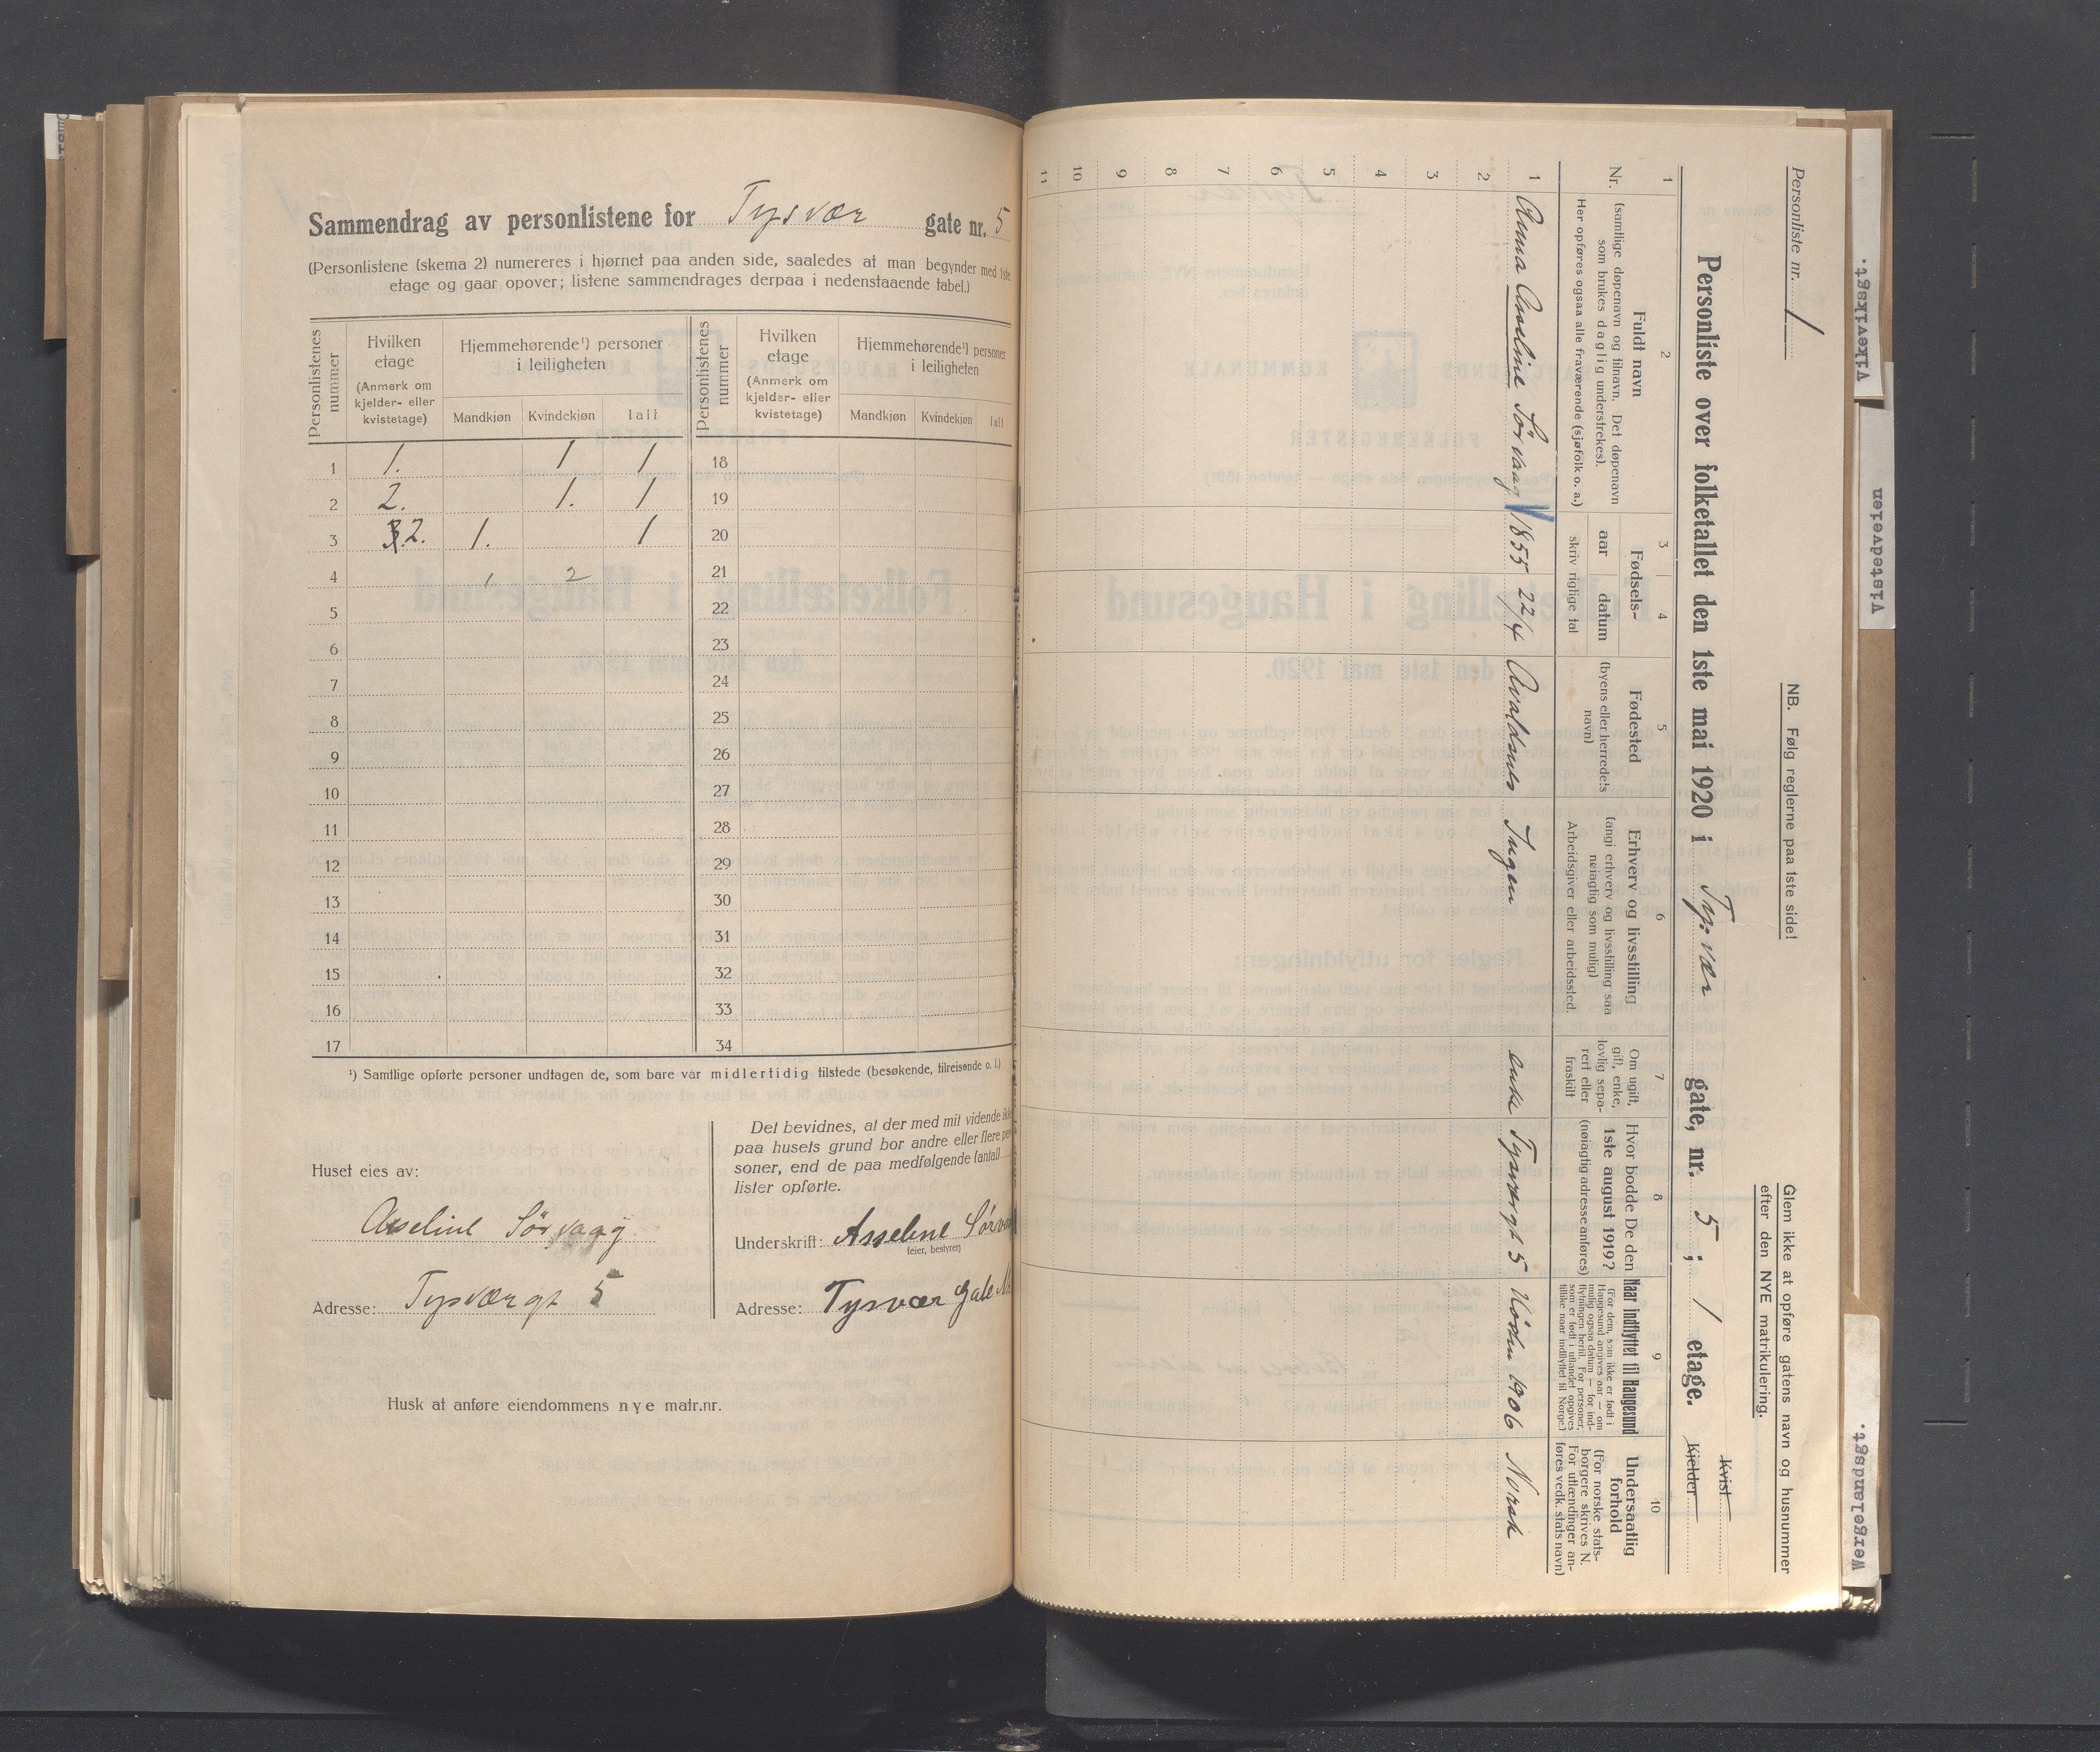 Sammendrag av personlistene for Tysvær gate nr. 5
(Personlistene (skema 2) numereres i hjørnet paa anden side, saaledes at man begynder med 1ste
etage og gaar opover; listene sammendrages derpaa i nedenstaaende tabel.)
Personlistenes nummer
Hvilken etage (Anmerk om kjelder- eller kvistetage)
Hjemmehørende¹) personer i leiligheten
Mandkjøn Kvindekjøn Ialt
Personlistenes nummer
Hvilken etage (Anmerk om kjelder- eller kvistetage)
Hjemmehørende¹) personer i leiligheten
Mandkjøn Kvindekjøn Ialt
1 1. 1 1 18
2 2. 1. 1 19
3 2. 1. 1 20
4 1 2 21
5 22
6 23
7 24
8 25
9 26
10 27
11 28
12 29
13 30
14 31
15 32
16 33
17 34
¹) Samtlige opførte personer undtagen de, som bare var midlertidig tilstede (besøkende, tilreisende o. l.)
Huset eies av:
Asseline Sörvaag
Adresse: Tysværgt 5
Det bevidnes, at der med mit vidende ikke
paa husets grund bor andre eller flere per-
soner, end de paa medfølgende (antall
lister opførte.
Underskrift: Asseline Sörva
(eier, bestyrer)
Adresse: Tysvær Gate N
Husk at anføre eiendommens nye matr.nr.
Personliste nr. 1
NB. Følg reglerne paa 1ste side!
Glem ikke at opføre gatens navn og husnummer
efter den NYE matrikulering.
Personliste over folketallet den 1ste mai 1920 i Tysvær gate, nr. 5; 1 etage.
Kvist
Kjelder
1 2 3 4 5 6 7 8 9 10
Nr.
Fuldt navn
(samtlige døpenavn og tilnavn. Det døpenavn
som brukes daglig understrekes).
Her opføres ogsaa alle fraværende (sjøfolk o. a.)
Fødsels-
aar datum
skriv rigtige tal
Fødested
(byens eller herredets
navn)
Erhverv og livsstilling
(angi erhverv og livsstilling saa
nøiagtig som mulig)
Arbeidsgiver eller arbeidssted.
Om ugift,
gift, enke,
lovlig sepa-
rert eller
fraskilt
Hvor bodde De den
1ste august 1919?
(nøiagtig adresse anføres)
Naar indflyttet til Haugesund
(For dem, som ikke er født i
Haugesund angives aar — om
mulig ogsaa datum — for ind-
flytningen hertil. For personer,
som er født i utlandet opgives
tillike naar indflyttet til Norge.)
Undersaatlig
forhold
(For norske stats-
borgere skrives N.
For utlændinger an-
føres vedk. stats navn)
1 Anna Asseline Sörvaag 1855 22/4 Avaldsnes Ingen enke Tysværgt 5 1906 Norsk
2
3
4
5
6
7
8
9
10
11
Vikeviksgt.
Vistedveien
Wergelandsgt.